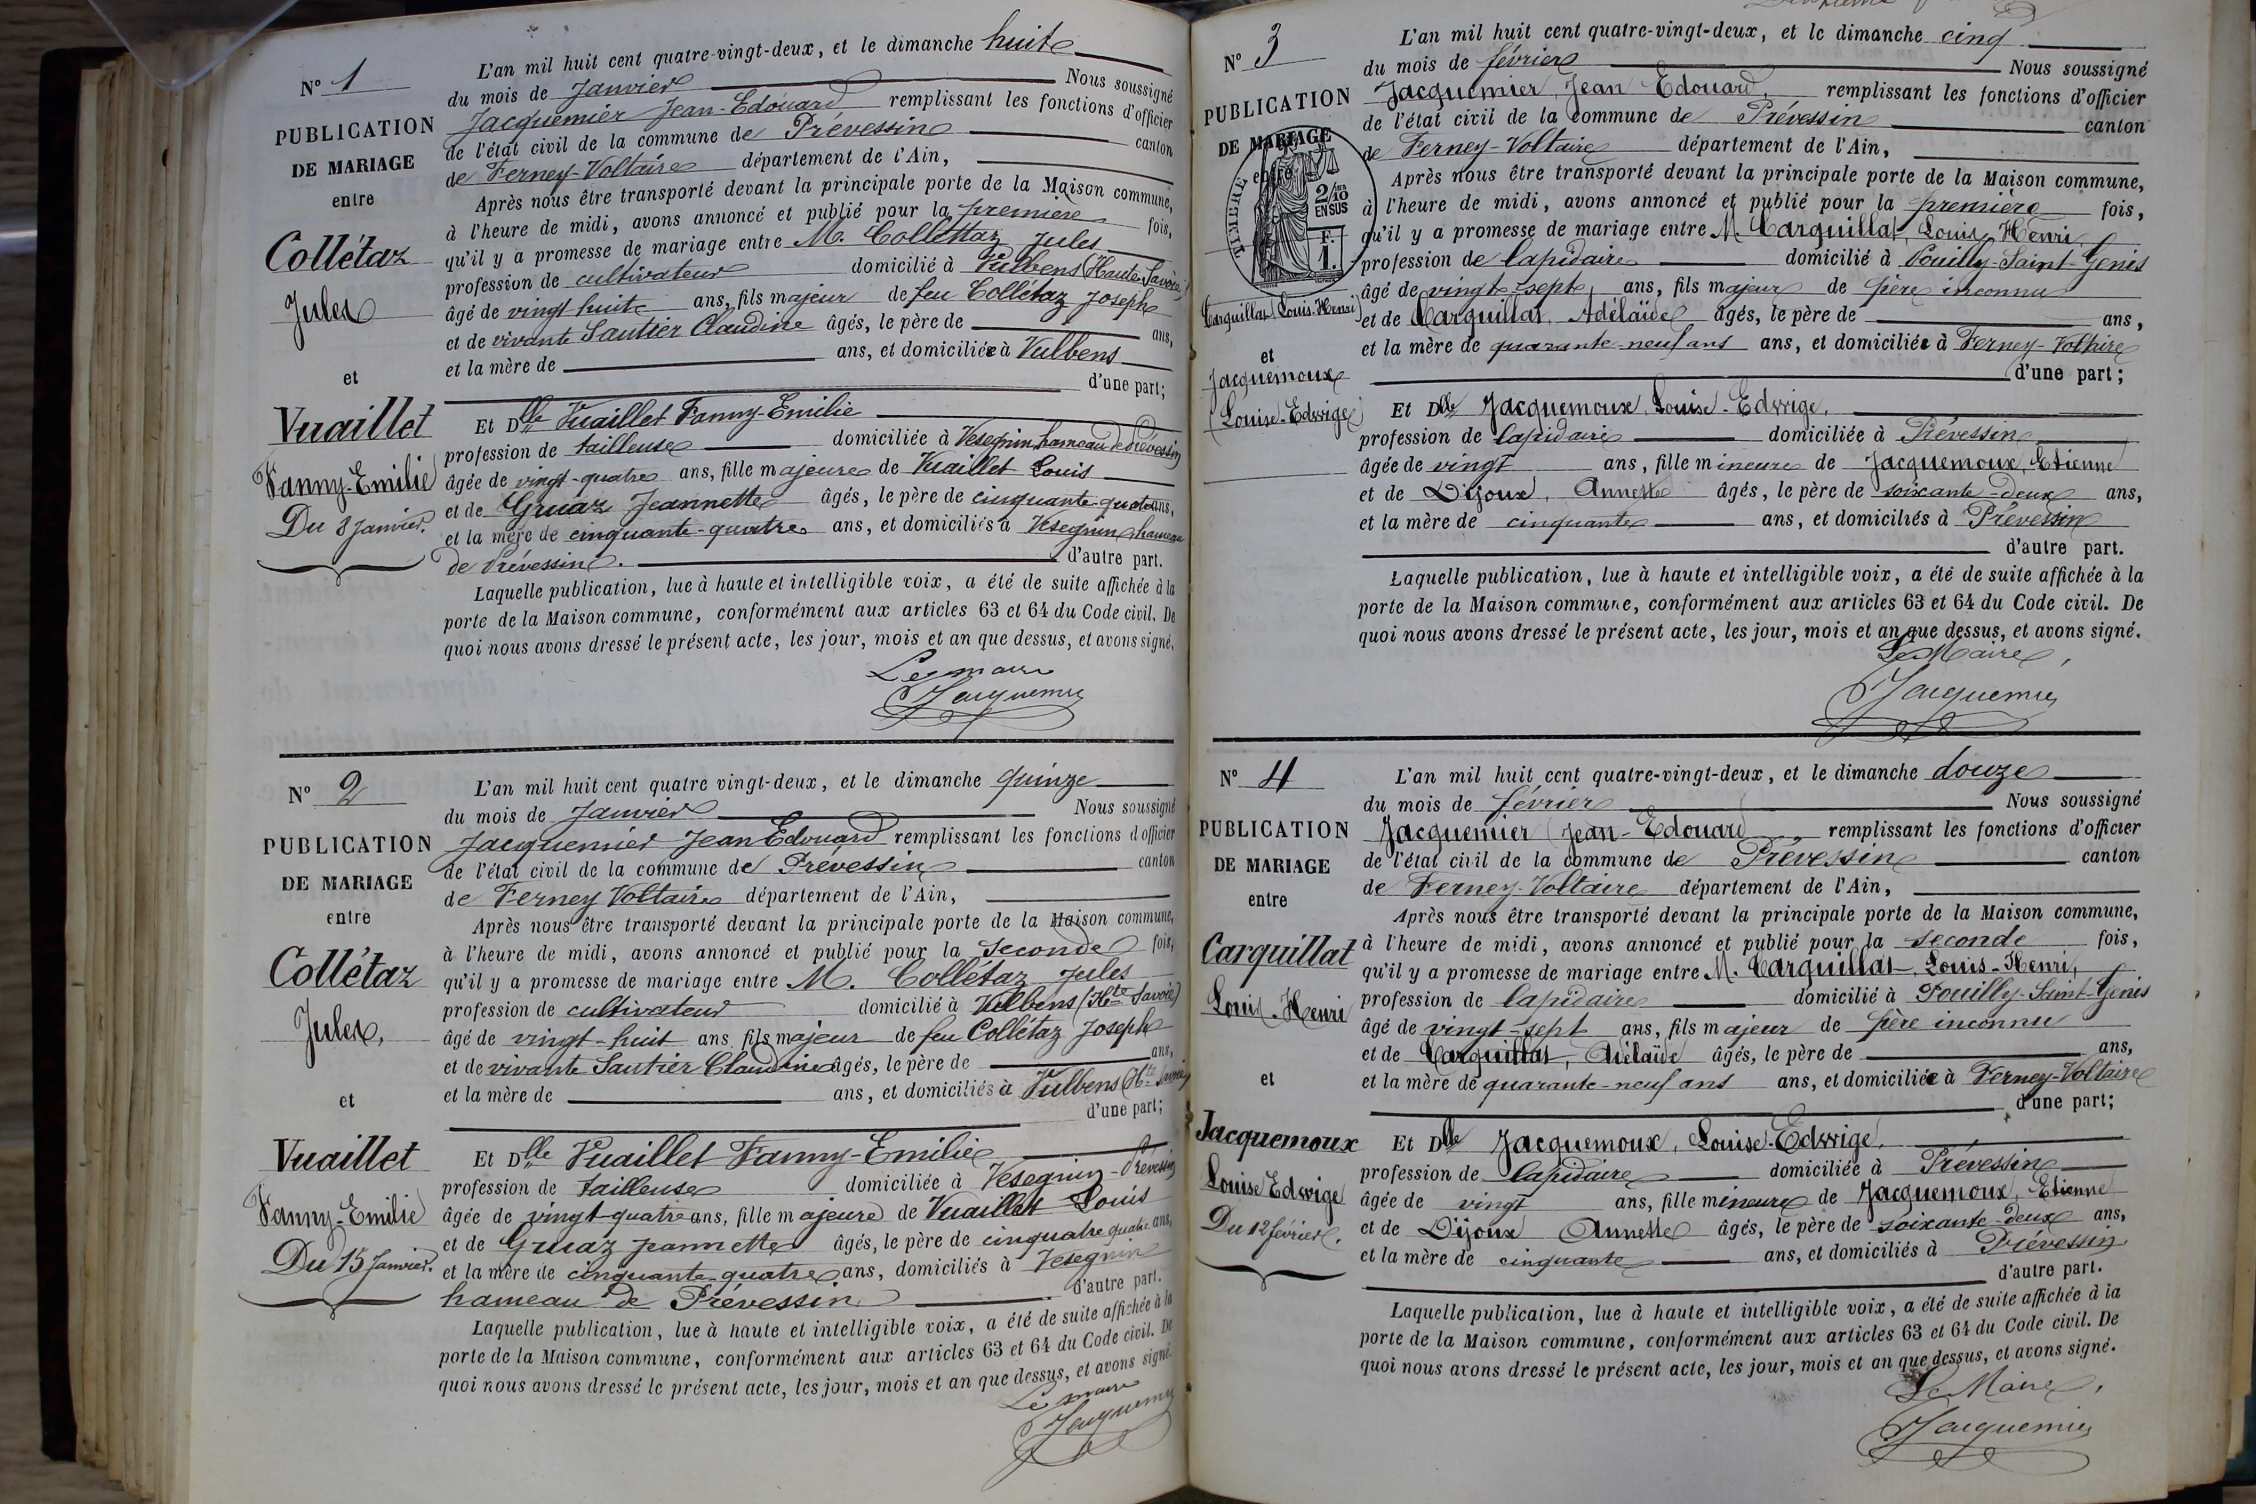 N° 1
PUBLICATION
DE MARIAGE
entre
Collétaz
Jules
et
Vuaillet
Fanny-Emilie
Du 8 Janvier.
L'an mil huit cent quatre-vingt-deux, et le dimanche huit
du mois de Janvier Nous soussigné
Jacquemier Jean-Edouard remplissant les fonctions d'officier
de l'état civil de la commune de Prévessin canton
de Ferney-Voltaire département de l'Ain,
Après nous être transporté devant la principale porte de la Maison commune,
à l'heure de midi, avons annoncé et publié pour la première fois,
qu'il y a promesse de mariage entre M. Collettaz Jules
profession de cultivateur domicilié à Vulbens (Haute-Savoie)
âgé de vingt huit ans, fils majeur de feu Collétaz Joseph
et de vivante Sautier Claudine âgés, le père de ans,
et la mère de ans, et domiciliée à Vulbens
d'une part;
Et Dlle Vuaillet Fanny-Emilie
profession de tailleuse domiciliée à Vesegnin hameau de Prévessin
âgée de vingt-quatre ans, fille majeure de Vuaillet Louis
et de Gruaz Jeannette âgés, le père de cinquante-quatre ans,
et la mère de cinquante-quatre ans, et domiciliés à Vesegnin hameau
de Prévessin. d'autre part.
Laquelle publication, lue à haute et intelligible voix, a été de suite affichée à la
porte de la Maison commune, conformément aux articles 63 et 64 du Code civil. De
quoi nous avons dressé le présent acte, les jour, mois et an que dessus, et avons signé.
Le maire
Jacquemier
N° 2
PUBLICATION
DE MARIAGE
entre
Collétaz
Jules,
et
Vuaillet
Fanny-Emilie
Du 15 Janvier.
L'an mil huit cent quatre vingt-deux, et le dimanche quinze
du mois de Janvier Nous soussigné
Jacquemier Jean Edouard remplissant les fonctions d'officier
de l'état civil de la commune de Prévessin canton
de Ferney Voltaire département de l'Ain,
Après nous être transporté devant la principale porte de la Maison commune,
à l'heure de midi, avons annoncé et publié pour la seconde fois,
qu'il y a promesse de mariage entre M. Collétaz Jules
profession de cultivateur domicilié à Vulbens (Hte Savoie)
âgé de vingt-huit ans fils majeur de feu Collétaz Joseph
et de vivante Sautier Claudine âgés, le père de ans,
et la mère de ans, et domiciliés à Vulbens (Hte Savoie)
d'une part;
Et Dlle Vuaillet Fanny-Emilie
profession de tailleuse domiciliée à Vesegnin-Prévessin
âgée de vingt-quatre ans, fille majeure de Vuaillet Louis
et de Gruaz Jeannette âgés, le père de cinquatre quatre ans,
et la mère de cinquante-quatre ans, domiciliés à Vesegnin
hameau de Prévessin. d'autre part.
Laquelle publication, lue à haute et intelligible voix, a été de suite affichée à la
porte de la Maison commune, conformément aux articles 63 et 64 du Code civil. De
quoi nous avons dressé le présent acte, les jour, mois et an que dessus, et avons signé.
Le maire
Jacquemier
N° 3
PUBLICATION
DE MARIAGE
entre
TIMBRE
2/10
EN SUS
F.
1.
Carquillat (Louis-Henri)
et
Jacquemoux
(Louise-Edwige)
L'an mil huit cent quatre-vingt-deux, et le dimanche cinq
du mois de février Nous soussigné
Jacquemier, Jean Edouard, remplissant les fonctions d'officier
de l'état civil de la commune de Prévessin canton
de Ferney-Voltaire département de l'Ain,
Après nous être transporté devant la principale porte de la Maison commune,
à l'heure de midi, avons annoncé et publié pour la première fois,
qu'il y a promesse de mariage entre M. Carquillat, Louis Henri,
profession de lapidaire domicilié à Pouilly-Saint-Genis
âgé de vingt-sept, ans, fils majeur de père inconnu
et de Carquillat, Adélaïde âgés, le père de ans,
et la mère de quarante-neuf ans ans, et domiciliée à Ferney-Voltaire
d'une part;
Et Dlle Jacquemoux, Louise-Edwige,
profession de lapidaire domiciliée à Prévessin
âgée de vingt ans, fille mineure de Jacquemoux, Etienne
et de Dijoux, Annette âgés, le père de soixante-deux ans,
et la mère de cinquante ans, et domiciliés à Prévessin
d'autre part.
Laquelle publication, lue à haute et intelligible voix, a été de suite affichée à la
porte de la Maison commune, conformément aux articles 63 et 64 du Code civil. De
quoi nous avons dressé le présent acte, les jour, mois et an que dessus, et avons signé.
Le Maire,
Jacquemier
N° 4
PUBLICATION
DE MARIAGE
entre
Carquillat
Louis-Henri
et
Jacquemoux
Louise Edwige
Du 12 février.
L'an mil huit cent quatre-vingt-deux, et le dimanche douze
du mois de février Nous soussigné
Jacquemier (Jean-Edouard) remplissant les fonctions d'officier
de l'état civil de la commune de Prévessin canton
de Ferney-Voltaire département de l'Ain,
Après nous être transporté devant la principale porte de la Maison commune,
à l'heure de midi, avons annoncé et publié pour la seconde fois,
qu'il y a promesse de mariage entre M. Carquillat, Louis-Henri,
profession de lapidaire domicilié à Pouilly-Saint-Genis
âgé de vingt-sept ans, fils majeur de père inconnu
et de Carquillat, Adélaïde âgés, le père de ans,
et la mère de quarante-neuf ans ans, et domiciliée à Ferney-Voltaire
d'une part;
Et Dlle Jacquemoux, Louise-Edwige,
profession de lapidaire domiciliée à Prévessin
âgée de vingt ans, fille mineure de Jacquemoux, Etienne
et de Dijoux Annette âgés, le père de soixante-deux ans,
et la mère de cinquante ans, et domiciliés à Prévessin
d'autre part.
Laquelle publication, lue à haute et intelligible voix, a été de suite affichée à la
porte de la Maison commune, conformément aux articles 63 et 64 du Code civil. De
quoi nous avons dressé le présent acte, les jour, mois et an que dessus, et avons signé.
Le Maire,
Jacquemier